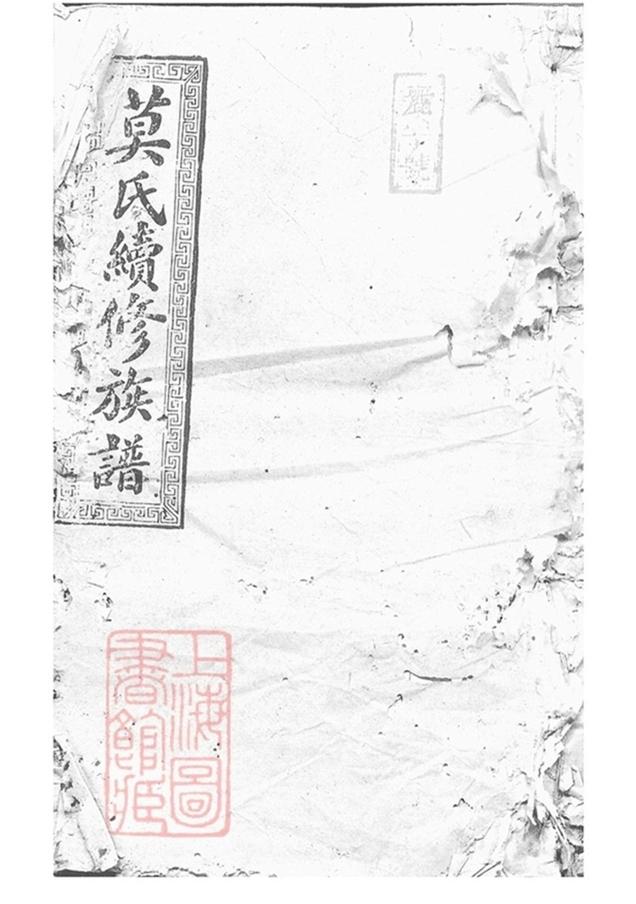 莫氏續修族譜
上海圖書館藏